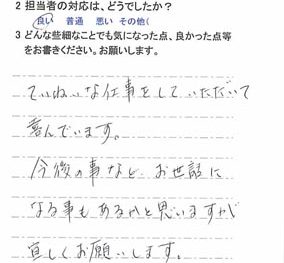 2 担当者の対応は、どうでしたか?
良い 普通 悪い その他(
3 どんな些細なことでも気になった点、良かった点等
をお書きください。お願いします。
ていねいな仕事をしていただいて
喜んでいます。
今後の事など、お世話に
なる事もあるかと思いますが
宜しくお願いします。